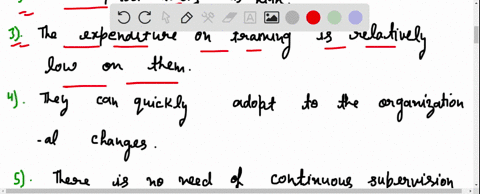 3). The expenditure on training is relatively
low on them.
4). They can quickly adopt to the organization
-al changes.
5). There is no need of continuous supervision